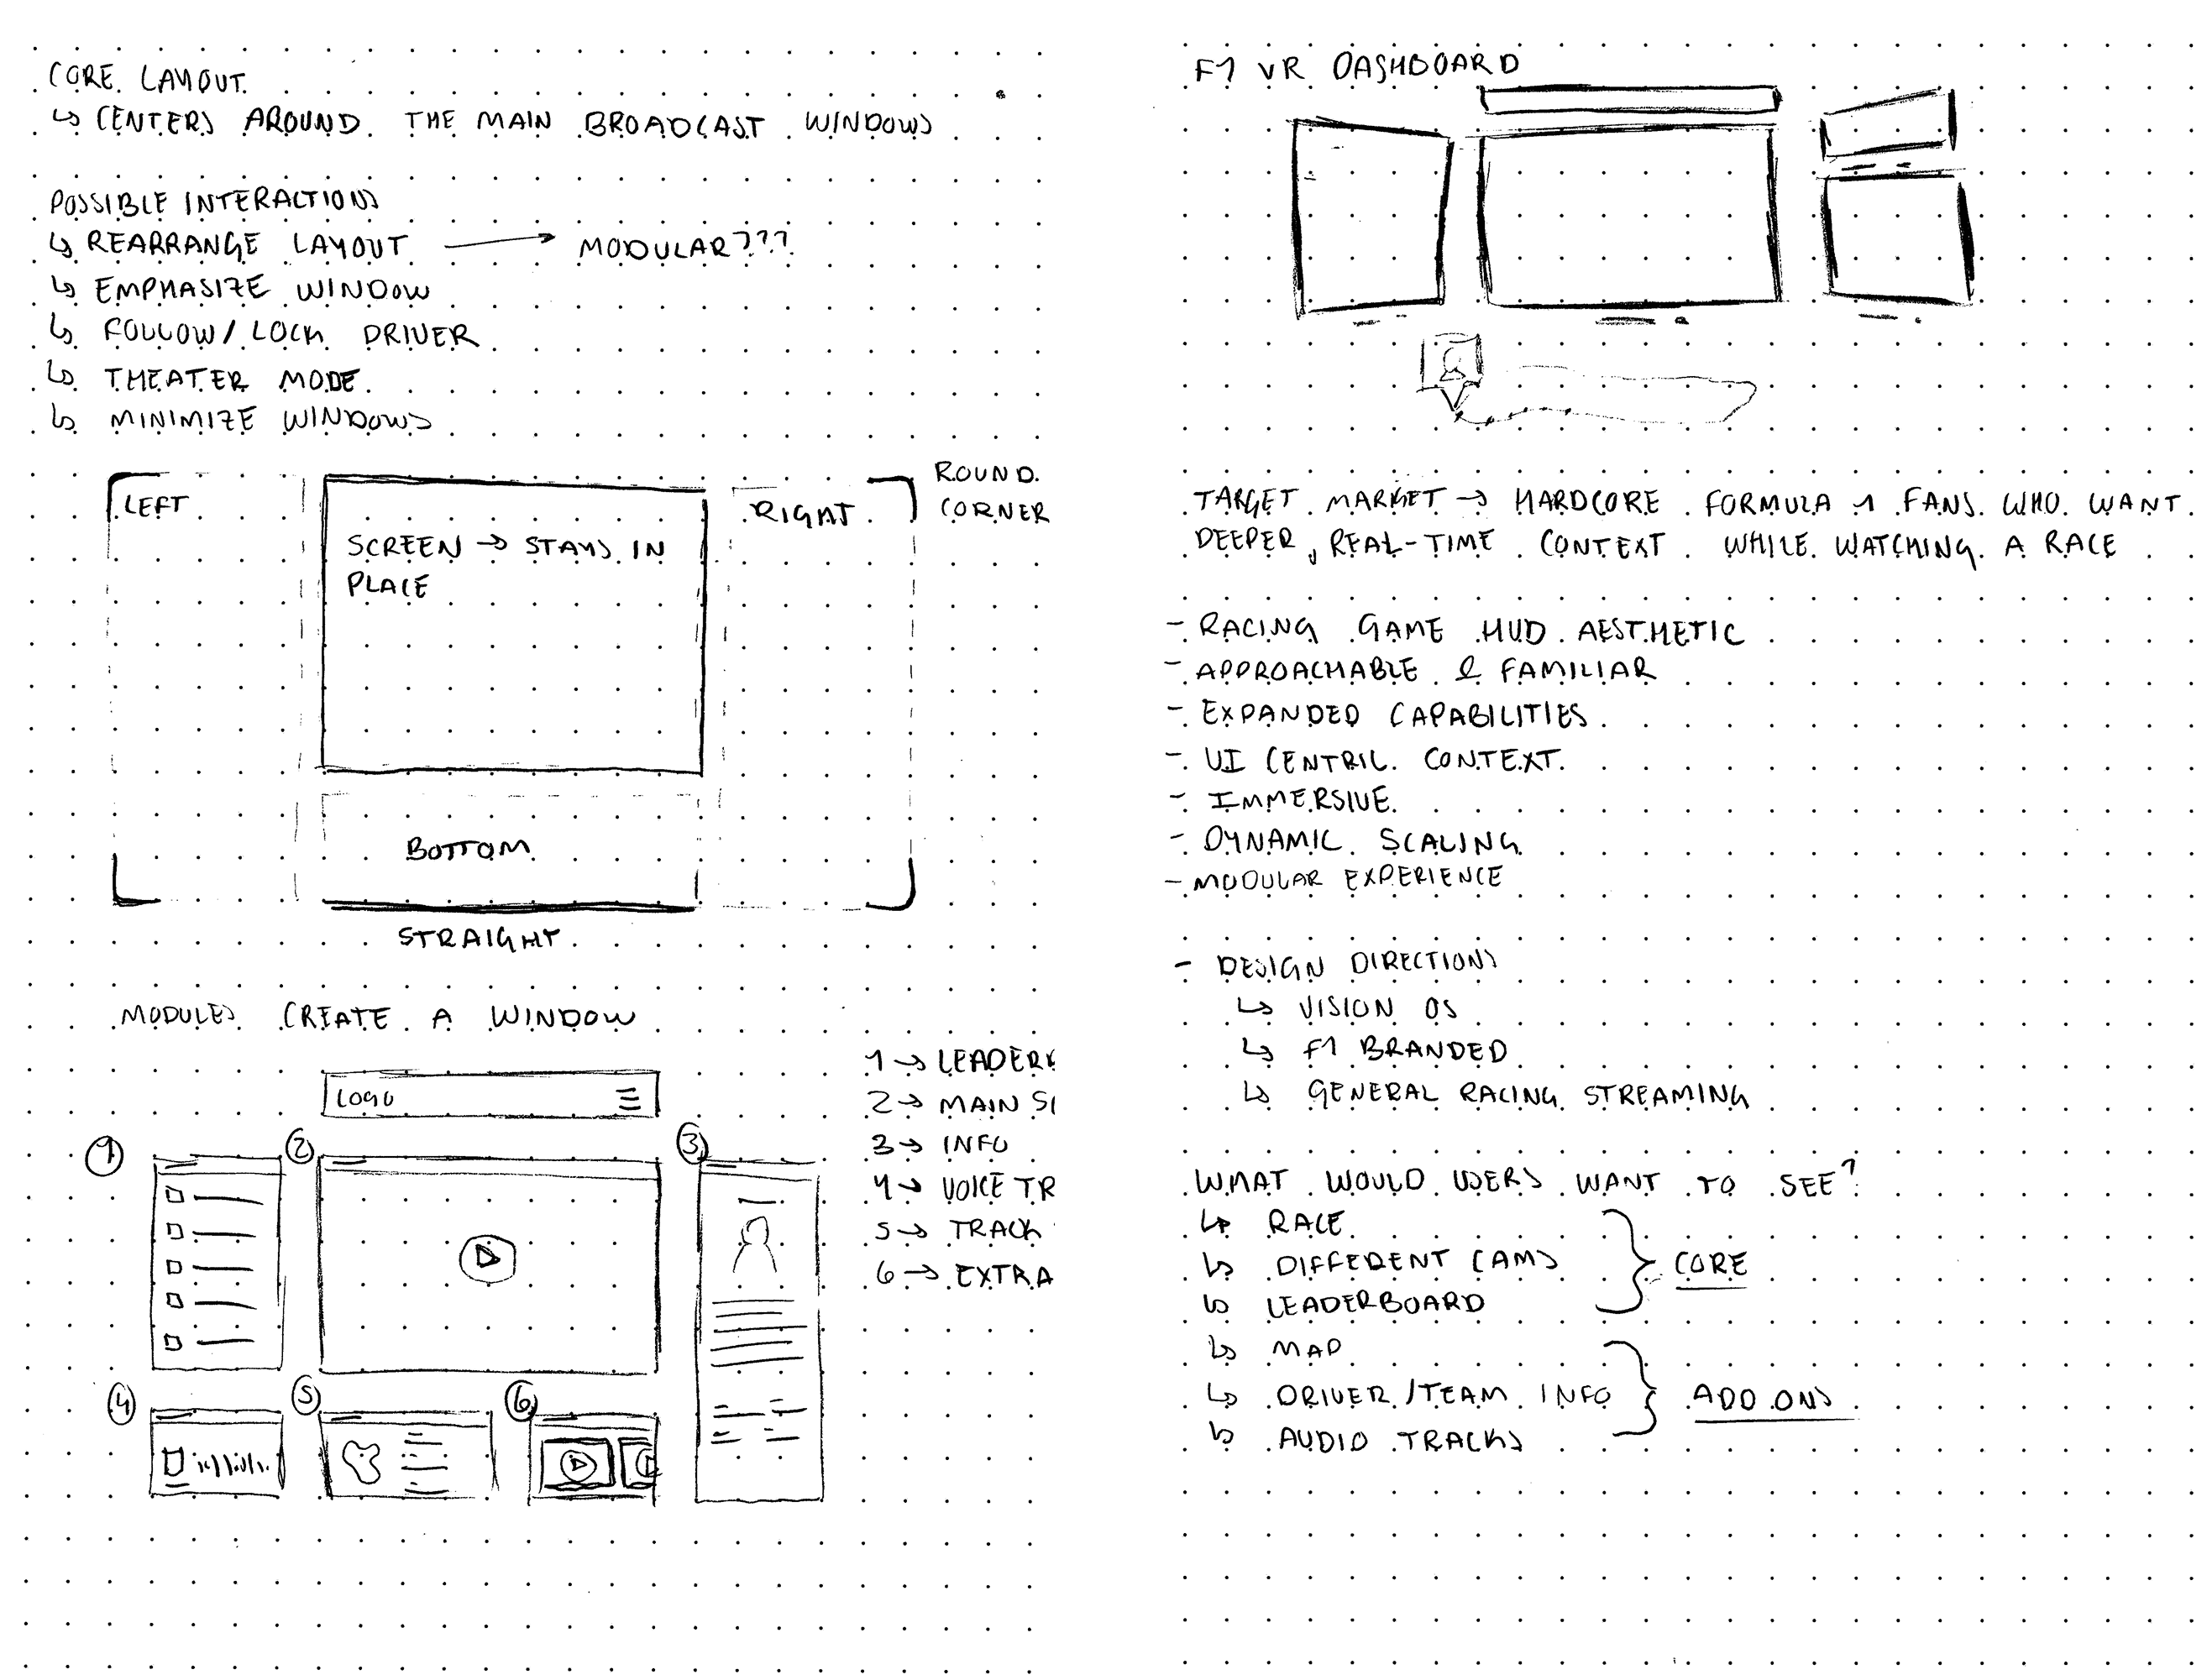 CORE LAYOUT
↳ CENTERS AROUND THE MAIN BROADCAST WINDOWS
POSSIBLE INTERACTIONS
↳ REARRANGE LAYOUT → MODULAR???
↳ EMPHASIZE WINDOW
↳ FOLLOW/LOCK DRIVER
↳ THEATER MODE
↳ MINIMIZE WINDOWS
LEFT
SCREEN → STAYS IN
PLACE
RIGHT
ROUND
CORNER
BOTTOM
STRAIGHT
MODULES CREATE A WINDOW
LOGO
1 2 3
4 5 6
1 → LEADER
2 → MAIN S
3 → INFO
4 → VOICE TR
5 → TRACK
6 → EXTRA
F1 VR DASHBOARD
TARGET MARKET → HARDCORE FORMULA 1 FANS WHO WANT
DEEPER, REAL-TIME CONTEXT WHILE WATCHING A RACE
- RACING GAME HUD AESTHETIC
- APPROACHABLE & FAMILIAR
- EXPANDED CAPABILITIES
- UI CENTRIC CONTEXT
- IMMERSIVE
- DYNAMIC SCALING
- MODULAR EXPERIENCE
- DESIGN DIRECTIONS
↳ VISION OS
↳ F1 BRANDED
↳ GENERAL RACING STREAMING
WHAT WOULD USERS WANT TO SEE?
↳ RACE
↳ DIFFERENT CAMS
↳ LEADERBOARD
CORE
↳ MAP
↳ DRIVER/TEAM INFO
↳ AUDIO TRACKS
ADD ONS